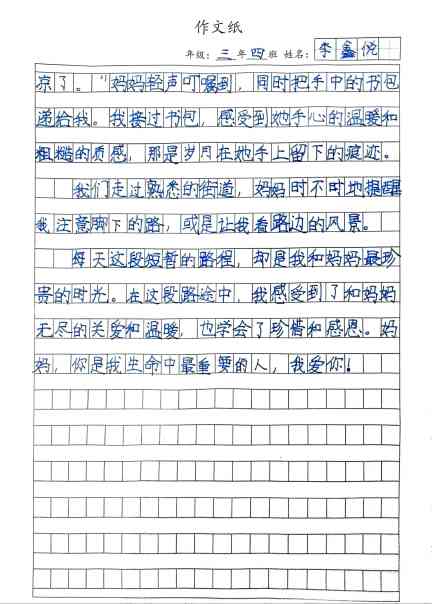 作文纸
年级：三年四班 姓名：李鑫悦
凉了。"妈妈轻声叮嘱到，同时把手中的书包
递给我。我接过书包，感受到她手心的温暖和
粗糙的质感，那是岁月在她手上留下的痕迹。
我们走过熟悉的街道，妈妈时不时地提醒
我注意脚下的路，或是让我看路边的风景。
每天这段短暂的路程，却是我和妈妈最珍
贵的时光。在这段路途中，我感受到了和妈妈
无尽的关爱和温暖，也学会了珍惜和感恩。妈
妈，你是我生命中最重要的人，我爱你！